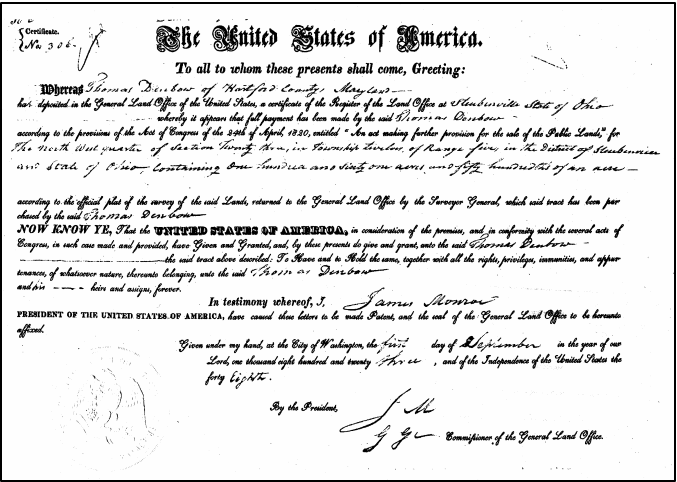 Certificate.
No. 306.
The United States of America.
To all to whom these presents shall come, Greeting:
Whereas Thomas Denbow of Hartford County, Maryland
has deposited in the General Land Office of the United States, a certificate of the Register of the Land Office at Steubenville State of Ohio
whereby it appears that full payment has been made by the said Thomas Denbow
according to the provisions of the Act of Congress of the 24th of April, 1820, entitled "An act making further provision for the sale of the Public Lands," for
The North West quarter of Section Twenty three, in Township Twelve, of Range five, in the District of Steubenville
and State of Ohio, containing One hundred and sixty one acres, and fifty hundredths of an acre
according to the official plat of the survey of the said Lands, returned to the General Land Office by the Surveyor General, which said tract has been pur
chased by the said Thomas Denbow
NOW KNOW YE, That the UNITED STATES OF AMERICA, in consideration of the premises, and in conformity with the several acts of
Congress, in such case made and provided, have Given and Granted, and, by these presents do give and grant, unto the said Thomas Denbow
the said tract above described: To Have and to Hold the same, together with all the rights, privileges, immunities, and appur
tenances, of whatsoever nature, thereunto belonging, unto the said Thomas Denbow
and his heirs and assigns, forever.
In testimony whereof, I, James Monroe
PRESIDENT OF THE UNITED STATES OF AMERICA, have caused these letters to be made Patent, and the seal of the General Land Office to be hereunto
affixed.
Given under my hand, at the City of Washington, the first day of September in the year of our
Lord, one thousand eight hundred and twenty three, and of the Independence of the United States the
forty Eighth.
By the President, J M
G G Commissioner of the General Land Office.